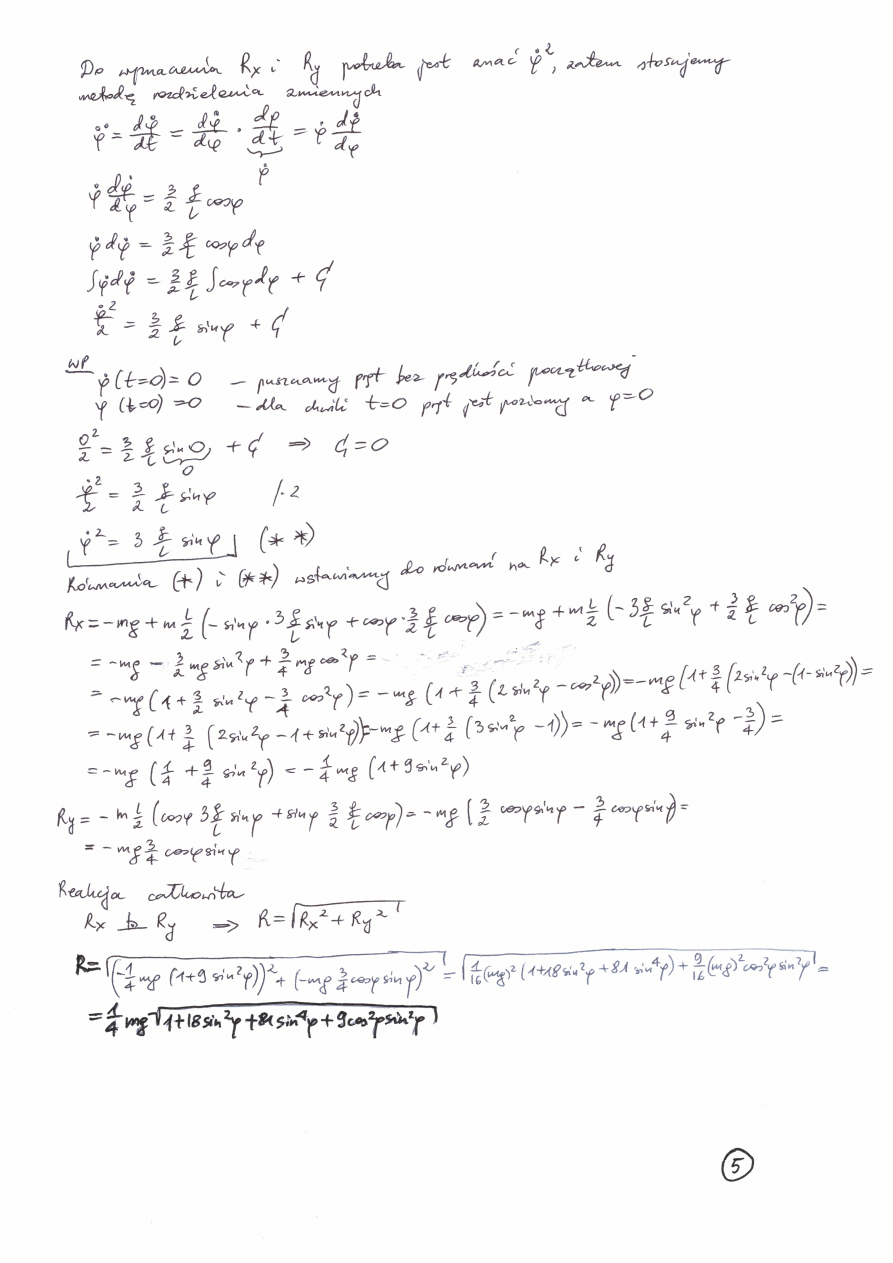 Do wyznaczenia Rx i Ry potrzeba jest znać φ̇², zatem stosujemy
metodę rozdzielenia zmiennych
φ̈ = dφ̇/dt = dφ̇/dφ · dφ/dt = φ̇ dφ̇/dφ
φ̇
φ̇ dφ̇/dφ = 3/2 g/l cosφ
φ̇ dφ̇ = 3/2 g/l cosφ dφ
∫φ̇dφ̇ = 3/2 g/l ∫cosφdφ + C₁
φ̇²/2 = 3/2 g/l sinφ + C₁
WP
φ̇(t=0)=0 – puszczamy pręt bez prędkości początkowej
φ(t=0)=0 – dla chwili t=0 pręt jest poziomy a φ=0
0²/2 = 3/2 g/l sin0 + C₁ ⇒ C₁=0
0
φ̇²/2 = 3/2 g/l sinφ /·2
φ̇² = 3 g/l sinφ (**)
Równania (*) i (**) wstawiamy do równań na Rx i Ry
Rx = -mg + m l/2 (-sinφ · 3 g/l sinφ + cosφ · 3/2 g/l cosφ) = -mg + m l/2 (-3 g/l sin²φ + 3/2 g/l cos²φ) =
= -mg - 3/2 mg sin²φ + 3/4 mg cos²φ =
= -mg (1 + 3/2 sin²φ - 3/4 cos²φ) = -mg (1 + 3/4 (2sin²φ - cos²φ)) = -mg (1 + 3/4 (2sin²φ - (1-sin²φ)) =
= -mg (1 + 3/4 (2sin²φ - 1 + sin²φ)) = -mg (1 + 3/4 (3sin²φ - 1)) = -mg (1 + 9/4 sin²φ - 3/4) =
= -mg (1/4 + 9/4 sin²φ) = -1/4 mg (1 + 9sin²φ)
Ry = -m l/2 (cosφ 3 g/l sinφ + sinφ 3/2 g/l cosφ) = -mg (3/2 cosφsinφ - 3/4 cosφsinφ) =
= -mg 3/4 cosφsinφ
Reakcja całkowita
Rx ⊥ Ry ⇒ R = √(Rx² + Ry²)
R = √((-1/4 mg (1+9sin²φ))² + (-mg 3/4 cosφsinφ)²) = √(1/16 (mg)² (1+18sin²φ + 81sin⁴φ) + 9/16 (mg)² cos²φsin²φ) =
= 1/4 mg √(1+18sin²φ + 81sin⁴φ + 9cos²φsin²φ)
5